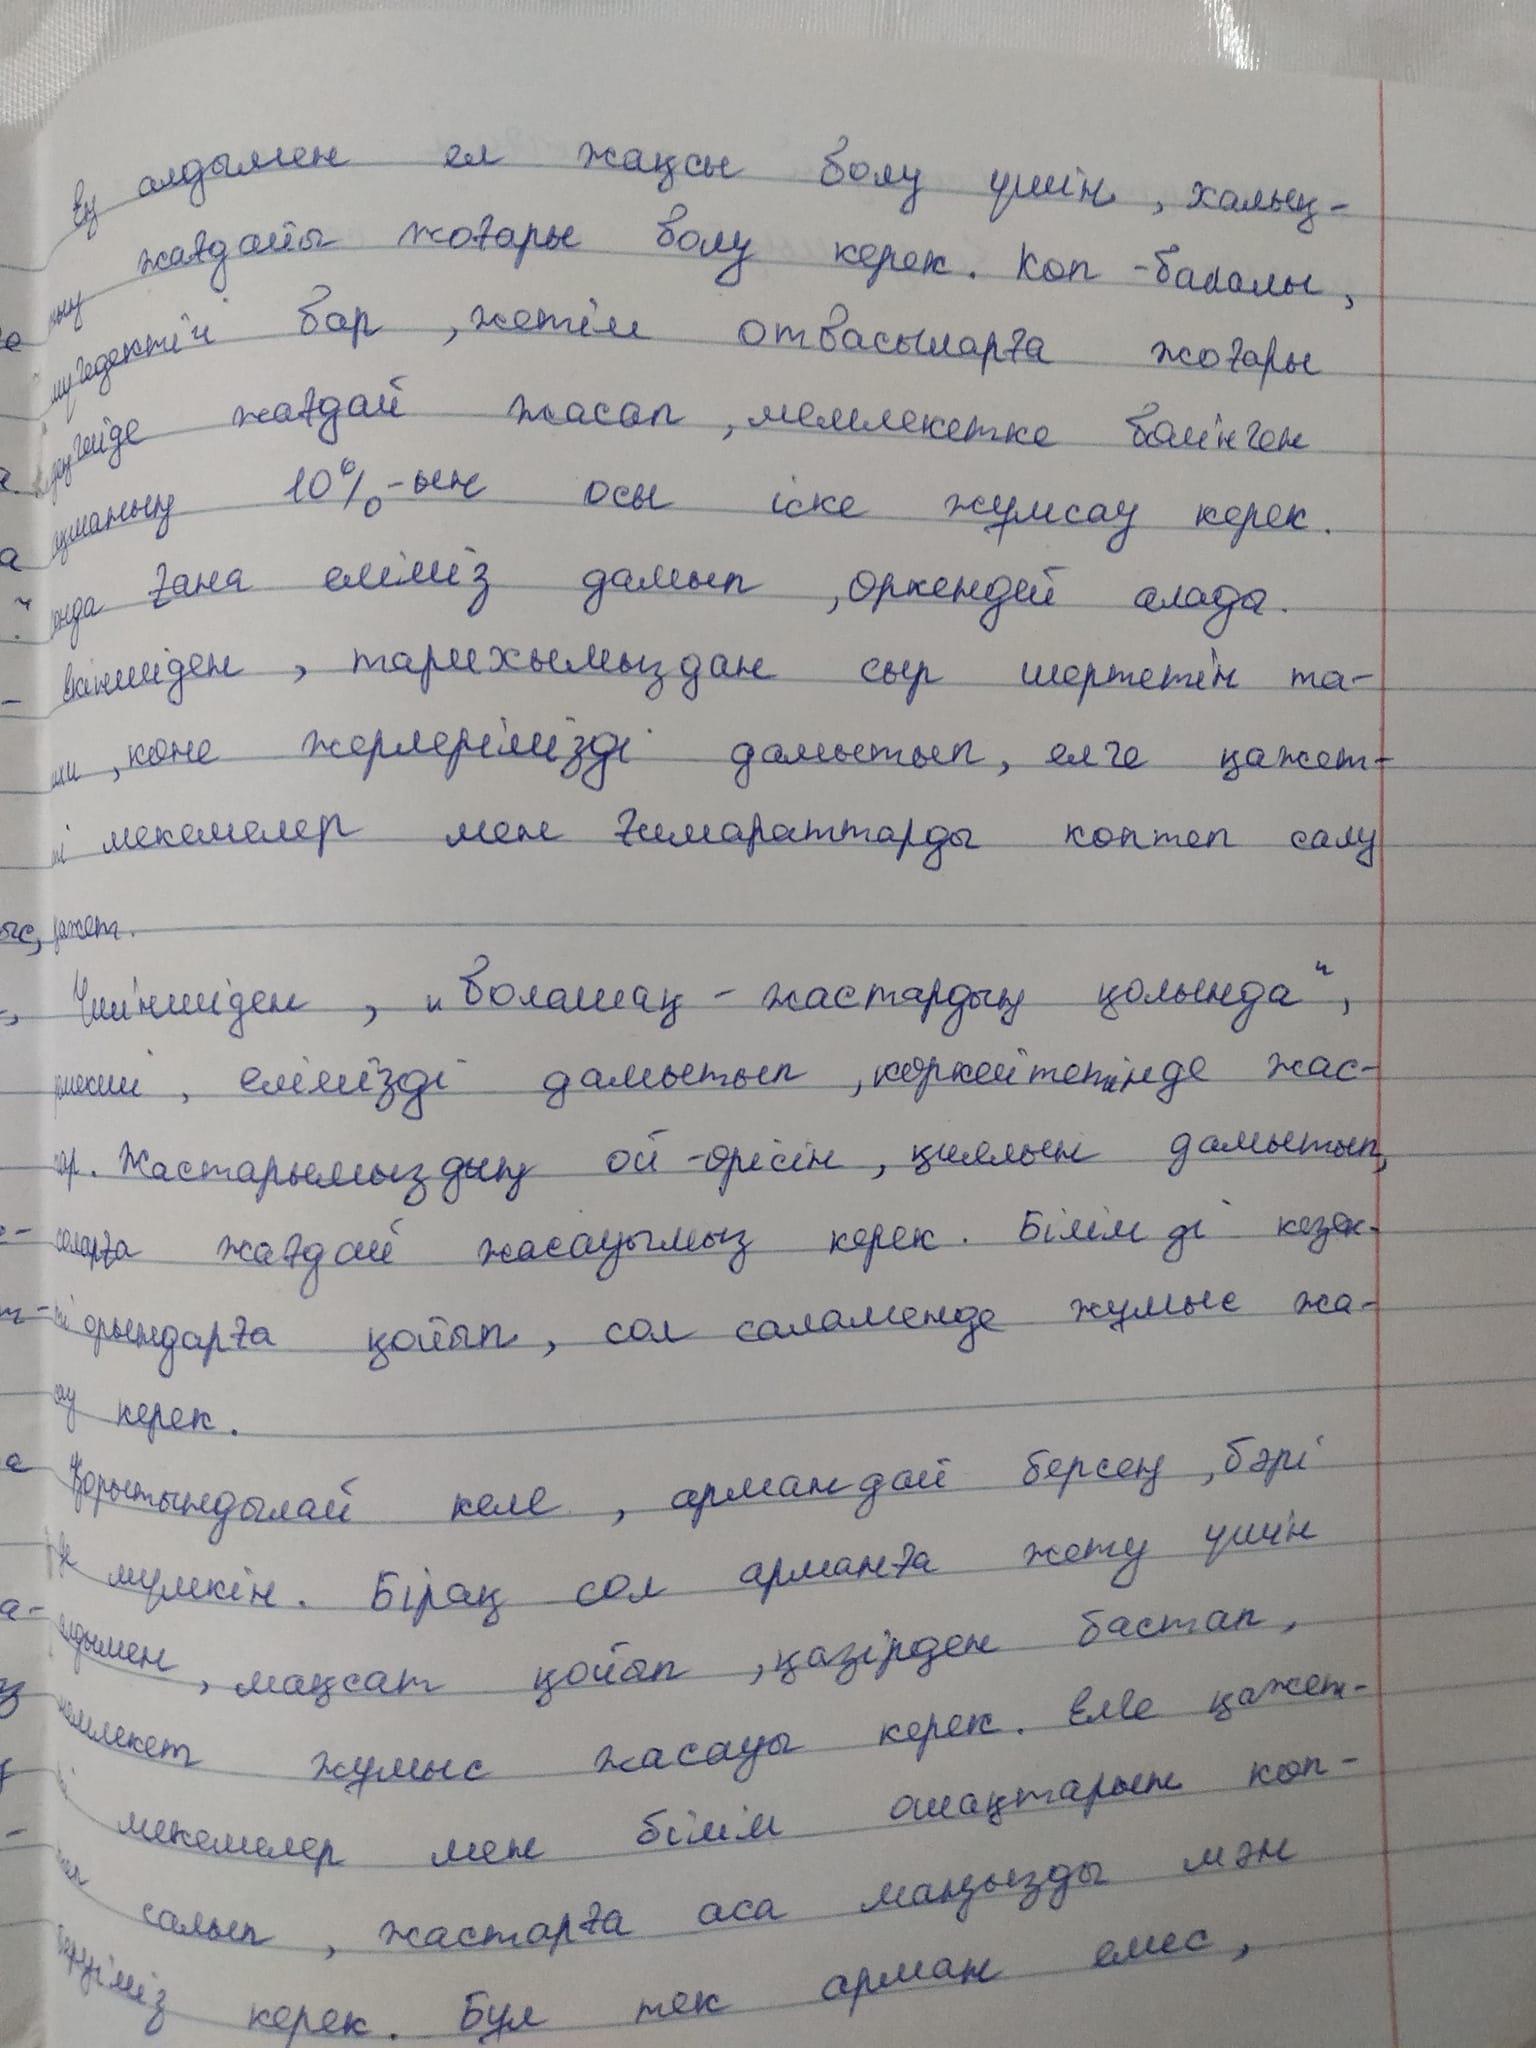 Ең алдымен ел жақсы болу үшін, халық-
ның жағдайы жоғары болу керек. Көп -балалы,
мүгедектігі бар, жетім отбасыларға жоғары
деңгейде жағдай жасап, мемлекетке бөлінген
ақшаның 10%-ын осы іске жұмсау керек.
Сонда ғана еліміз дамып, өркендей алады.
Екіншіден, тарихымыздан сыр шертетін та-
рихи, көне жерлерімізді дамытып, елге қажет-
ті мекемелер мен ғимараттарды көптеп салу
қажет.
Үшіншіден, „Болашақ - жастардың қолында",
демекші, елімізді дамытып, көркейтетінде жас-
тар. Жастарымыздың ой -өрісін, қиялын дамытып,
соларға жағдай жасауымыз керек. Білімді кезек-
ті орындарға қойып, сол саламенде жұмыс жа-
сау керек.
Қорытындылай келе, армандай берсең, бәрі
де мүмкін. Бірақ сол арманға жету үшін
алдымен, мақсат қойып, қазірден бастап,
мемлекет жұмыс жасауы керек. Елге қажет-
ті мекемелер мен білім ошақтарын көп-
теп салып, жастарға аса маңызды мән
беруіміз керек. Бұл тек арман емес,